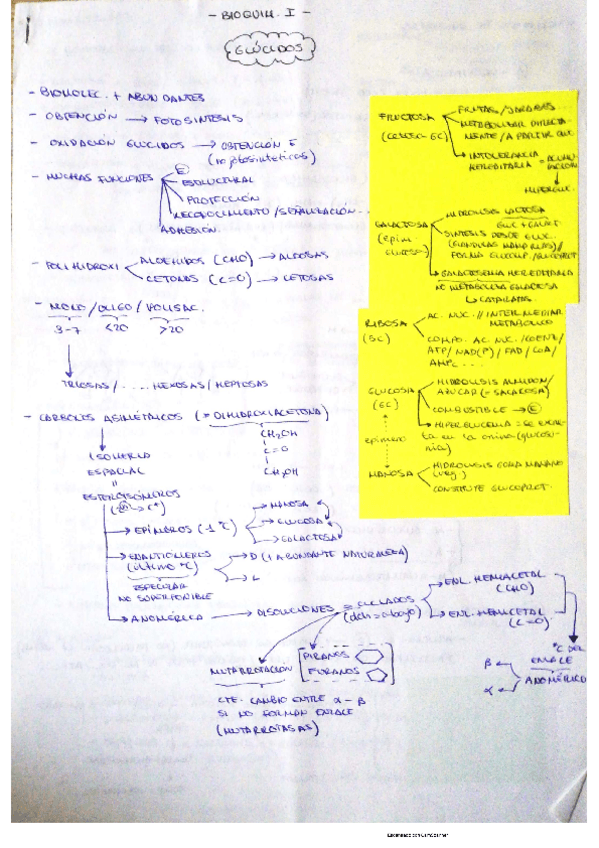 - BIOQUIM. I -
GLÚCIDOS
- BIOMOLEC. + ABUNDANTES
- OBTENCIÓN → FOTOSÍNTESIS
- OXIDACIÓN GLÚCIDOS → OBTENCIÓN E
(no fotosintéticos)
- MUCHAS FUNCIONES
E
ESTRUCTURAL
PROTECCIÓN
RECONOCIMIENTO/SEÑALIZACIÓN...
ADHESIÓN
- POLIHIDROXI
ALDEHIDOS (CHO) → ALDOSAS
CETONAS (C=O) → CETOSAS
- MONO/OLIGO/POLISAC.
3-7 <20 >20
TRIOSAS/.... HEXOSAS/HEPTOSAS
- CARBONOS ASIMÉTRICOS (≠ DIHIDROXIACETONA)
CH₂OH
C=O
CH₂OH
ISOMERIA
ESPACIAL
=
ESTEREOISÓMEROS
→ EPÍMEROS (-1 ºC)
→ MANOSA
→ GLUCOSA
→ GALACTOSA
→ ENANTIÓMEROS
(último ºC)
→ D (+ ABUNDANTE NATURALEZA)
→ L
ESPECULAR
NO SUPERPONIBLE
→ ANOMÉRICA → DISOLUCIONES = CICLADOS
(dch = abajo)
→ ENL. HEMIACETAL
(CHO)
→ ENL. HEMICETAL
(C=O)
ºC DEL
ENLACE
ANOMÉRICO
β
α
PIRANOS
FURANOS
MUTARROTACIÓN
CTE. CAMBIO ENTRE α-β
SI NO FORMAN ENLACE
(MUTARROTASAS)
FRUCTOSA
(cetosa 6C)
FRUTAS/JARABES...
METABOLIZAR DIRECTA-
MENTE/A PARTIR GLUC
INTOLERANCIA
HEREDITARIA = ACUMU-
LACIÓN
GALACTOSA
(epim.
glucosa)
HIDRÓLISIS LACTOSA
GLUC + GALACT.
SÍNTESIS DESDE GLUC.
(GLÁNDULAS MAMARIAS)/
FORMA GLUCOLIP./GLUCOPROT
→ GALACTOSEMIA HEREDITARIA
NO METABOLIZA GALACTOSA
→ CATARATAS
RIBOSA
(5C)
AC. NUC. // INTERMEDIAR
METABÓLICO
COMPO. AC. NUC./COENZ/
ATP/NAD(P)/FAD/CoA/
AMPc...
GLUCOSA
(6C)
HIDRÓLISIS ALMIDÓN/
AZÚCAR (= SACAROSA)
COMBUSTIBLE → E
HIPERGLUCEMIA = SE EXCRE-
TA EN LA ORINA (glucosu-
ria)
epímero
MANOSA
HIDRÓLISIS GOMA MANANO
(veg.)
CONSTITUYE GLUCOPROT.
Escaneado con CamScanner